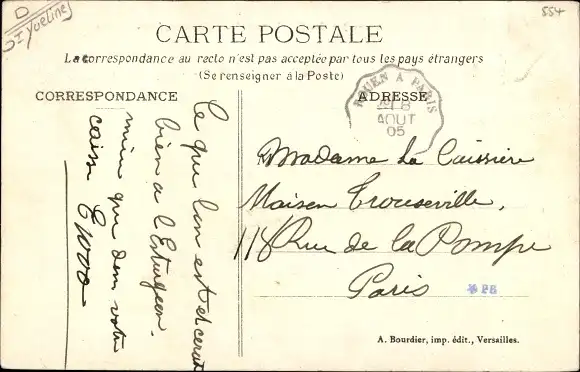 D
Yvelines
554
CARTE POSTALE
La correspondance au recto n'est pas acceptée par tous les pays étrangers
(Se renseigner à la Poste)
CORRESPONDANCE
ce que l'on est
bien a l'Esturgeon.
mieu que dem votre
caisse
ADRESSE
ROUEN À PARIS
AOUT
05
Madame La Caissière
Maison Trouseville,
118 Rue de la Pompe
Paris
A. Bourdier, imp. édit., Versailles.